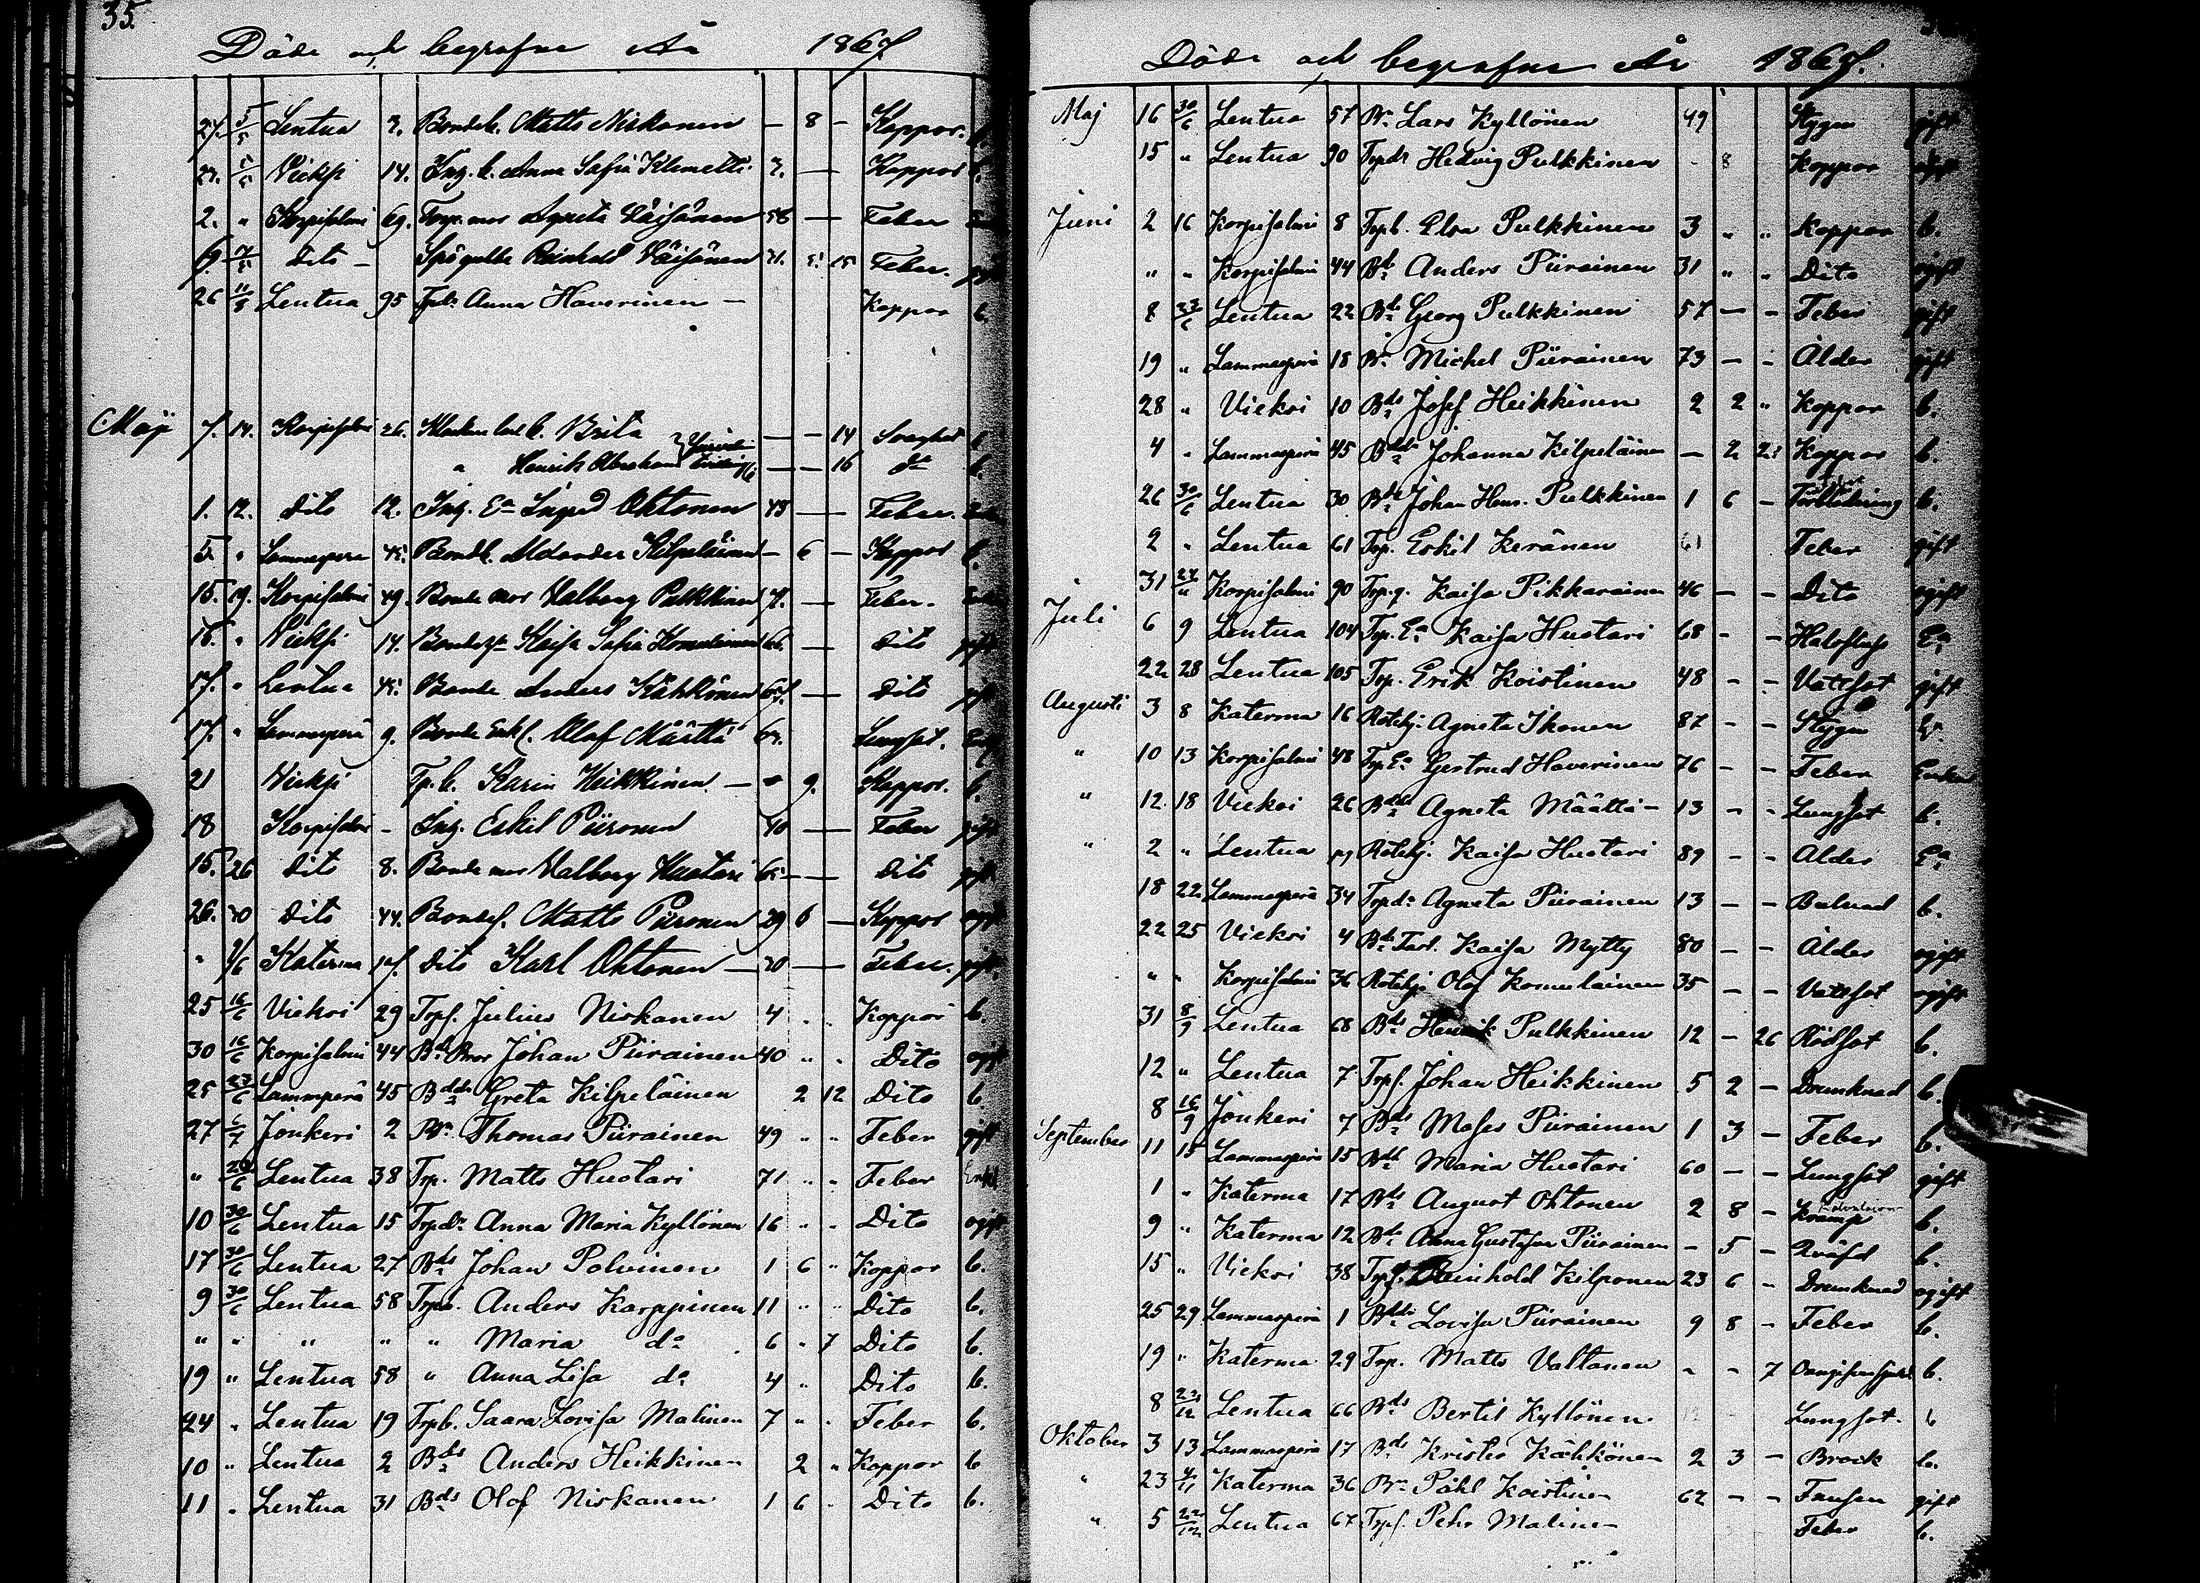 35.
Döde och begrafne År 1867
27. 5/5 Lentua 2. Bondeb. Matts Niskanen — 8 — Koppor. b.
Vieksi 14. Inh. b. Anna Sofia Klemetti Koppor b.
2. " Korpisalmi 69. Agneta Väisänen 58 — Feber
9. Dito — Reinhold Väisänen 21. 15 Feber.
26 11/5 Lentua 95 Anna Haverinen — Koppor b.
Maji 7. 14. Korpisalmi 26. b. Brita — — 14 b.
" Henrik Abraham — — 16 do b.
1. 12. Dito 12. Inh. Ea Ingrid Ohtonen 48 — Feber.
5. " Lammaspera 45. Bondb. Kilpeläinen — 6 — Koppor b.
15. 19. Korpisalmi 49. Bonde mor Valborg Pulkkinen — Feber.
16. " Vieksi 14. Kaisa Sofia Komulainen 66. — Dito gift
17. " Lentua 45. Bonde Anders Kähkönen 67. — Dito gift
17. " Lammasperä 9. Bonde Enkl. Olof Määttä Lungsot.
21 Vieksi Tp. b. Karin Heikkinen — 9. Koppor. b.
18 Korpisalmi — Inh. Eskil Piironen 40 — Feber gift
15. 26 Dito 8. Bonde mor Valborg Huotari — Dito
26. 30 Dito 44. Bondes. Matts Piironen 29 6 — Koppor ogift
" 9/6 Katerma 17. Dito Karl Ohtonen — 20 — Feber. gift.
25 16/6 Vieksi 29 Trps. Julius Niskanen 4 . . Koppor b.
30 16/6 Korpisalmi 44 Bd. Bror Johan Piirainen 40 " . Dito ogift
25 23/6 Lammperä 45 Bdr Greta Kilpeläinen 2 12 Dito b.
27 6/7 Jonkeri 2 Bn Thomas Piirainen 49 " " Feber gift
" 24/6 Lentua 38 Trp. Matts Huotari 71 " " Feber Enkl
10 30/6 Lentua 15 Trpdr Anna Maria Kyllönen 16 " " Dito ogift
17 30/6 Lentua 27 Bds Johan Polvinen 1 6 " Koppor b.
9 30/6 Lentua 58 Trps. Anders Karppinen 11 " " Dito b.
" " " " " Maria do 6 " 7 Dito b.
19 " Lentua 58 " Anna Lisa do 4 " Dito b.
24 " Lentua 19 Trpb. Saara Lovisa Malinen 7 " . Feber b.
10 " Lentua 2 Bds Anders Heikkinen 2 " Koppor b
11 " Lentua 31 Bds Olof Niskanen 1 6 . Dito b.
Döde och begrafne År 1867.
Maj 16 30/6 Lentua 57 Bn Lars Kyllönen 49 Stygn gift
15 " Lentua 90 Trpdr Hedvig Pulkkinen - 8 Koppor
Juni 2 16 Korpisalmi 8 Trpb. Elsa Pulkkinen 3 " " Koppor b.
" " Korpisalmi 44 Bd Anders Piirainen 31 " " Dito ogift
8 23/6 Lentua 22 Bd Georg Pulkkinen 57 — - Feber gift
19 " Lammasperä 18 Bn Michel Piirainen 73 — - Ålder gift
28 " Vieksi 10 Bds Josef Heikkinen 2 2 " Koppor b.
4 " Lammasperä 45 Bddr Johanna Kilpeläinen — 2 Koppor b.
26 30/6 Lentua 30 Bds Johan Henr. Pulkkinen 1 6 — Förblödning b.
2 " Lentua 61 Trp. Eskil Keränen 61 Feber gift
31 Korpisalmi 90 Trp. Kaisa Pikkarainen 46 — - Dito ogift
Juli 6 9 Lentua 104 Trp. Ea Kaisa Huotari 68 - - Halsfluss Ea
22 28 Lentua 105 Trp. Erik Koistinen 48 - - Vattsot gift
Augusti 3 8 Katerma 16 Rotehj. Agneta Ikonen 87 - - Stygn
" 10 13 Korpisalmi 48 Trp Ea Gertrud Haverinen 76 — - Feber Enka
" 12. 18 Vieksi 26 Bddr Agneta Määttä — 13 — - Lungsot b.
" 2 " Lentua Rotehj. Kaisa Huotari 89 — - Ålder Ea
18 22 Lammasperä 34 Trpdr Agneta Piirainen 13 — - Bulnad b.
22 25 Vieksi 4 Kaisa Mytty 80 — - Ålder ogift
" " Korpisalmi 36 Rotehj. Olof Komulainen 35 — - Vattsot ogift
31 8/9 Lentua 68 Bds Henrik Pulkkinen 12 — 26 Rödsot b.
12 " Lentua 7 Trps. Johan Heikkinen 5 2 — Drunknad b.
8 16/9 Jonkeri 7 Bds Moses Piirainen 1 3 — Feber b.
September 11 15 Lammasperä 15 Maria Huotari 60 — - Lungsot gift
1 " Katerma 17 Bds August Ohtonen 2 8 - Kramp b.
9 " Katerma 12 Anna Gustafva Piirainen — 5 — Qväfd b.
15 " Vieksi 38 Trps. Reinhold Kilponen 23 6 - Drunknad ogift
25 29 Lammasperä 1 Bddr Lovisa Piirainen 9 8 - Feber b.
19 " Katerma 29 Trp. Matts Valtanen - - 7 b.
8 Lentua 66 Bds Bertil Kyllönen Lungsot. b
Oktober 3 13 Lammasperä 17 Bds Krister Kähkönen 2 3 — Brock b.
" 23 Katerma 36 Bn Påhl Koistinen 62 — - gift
" 5 22/12 Lentua 67 Trps. Pehr Malinen Feber b.